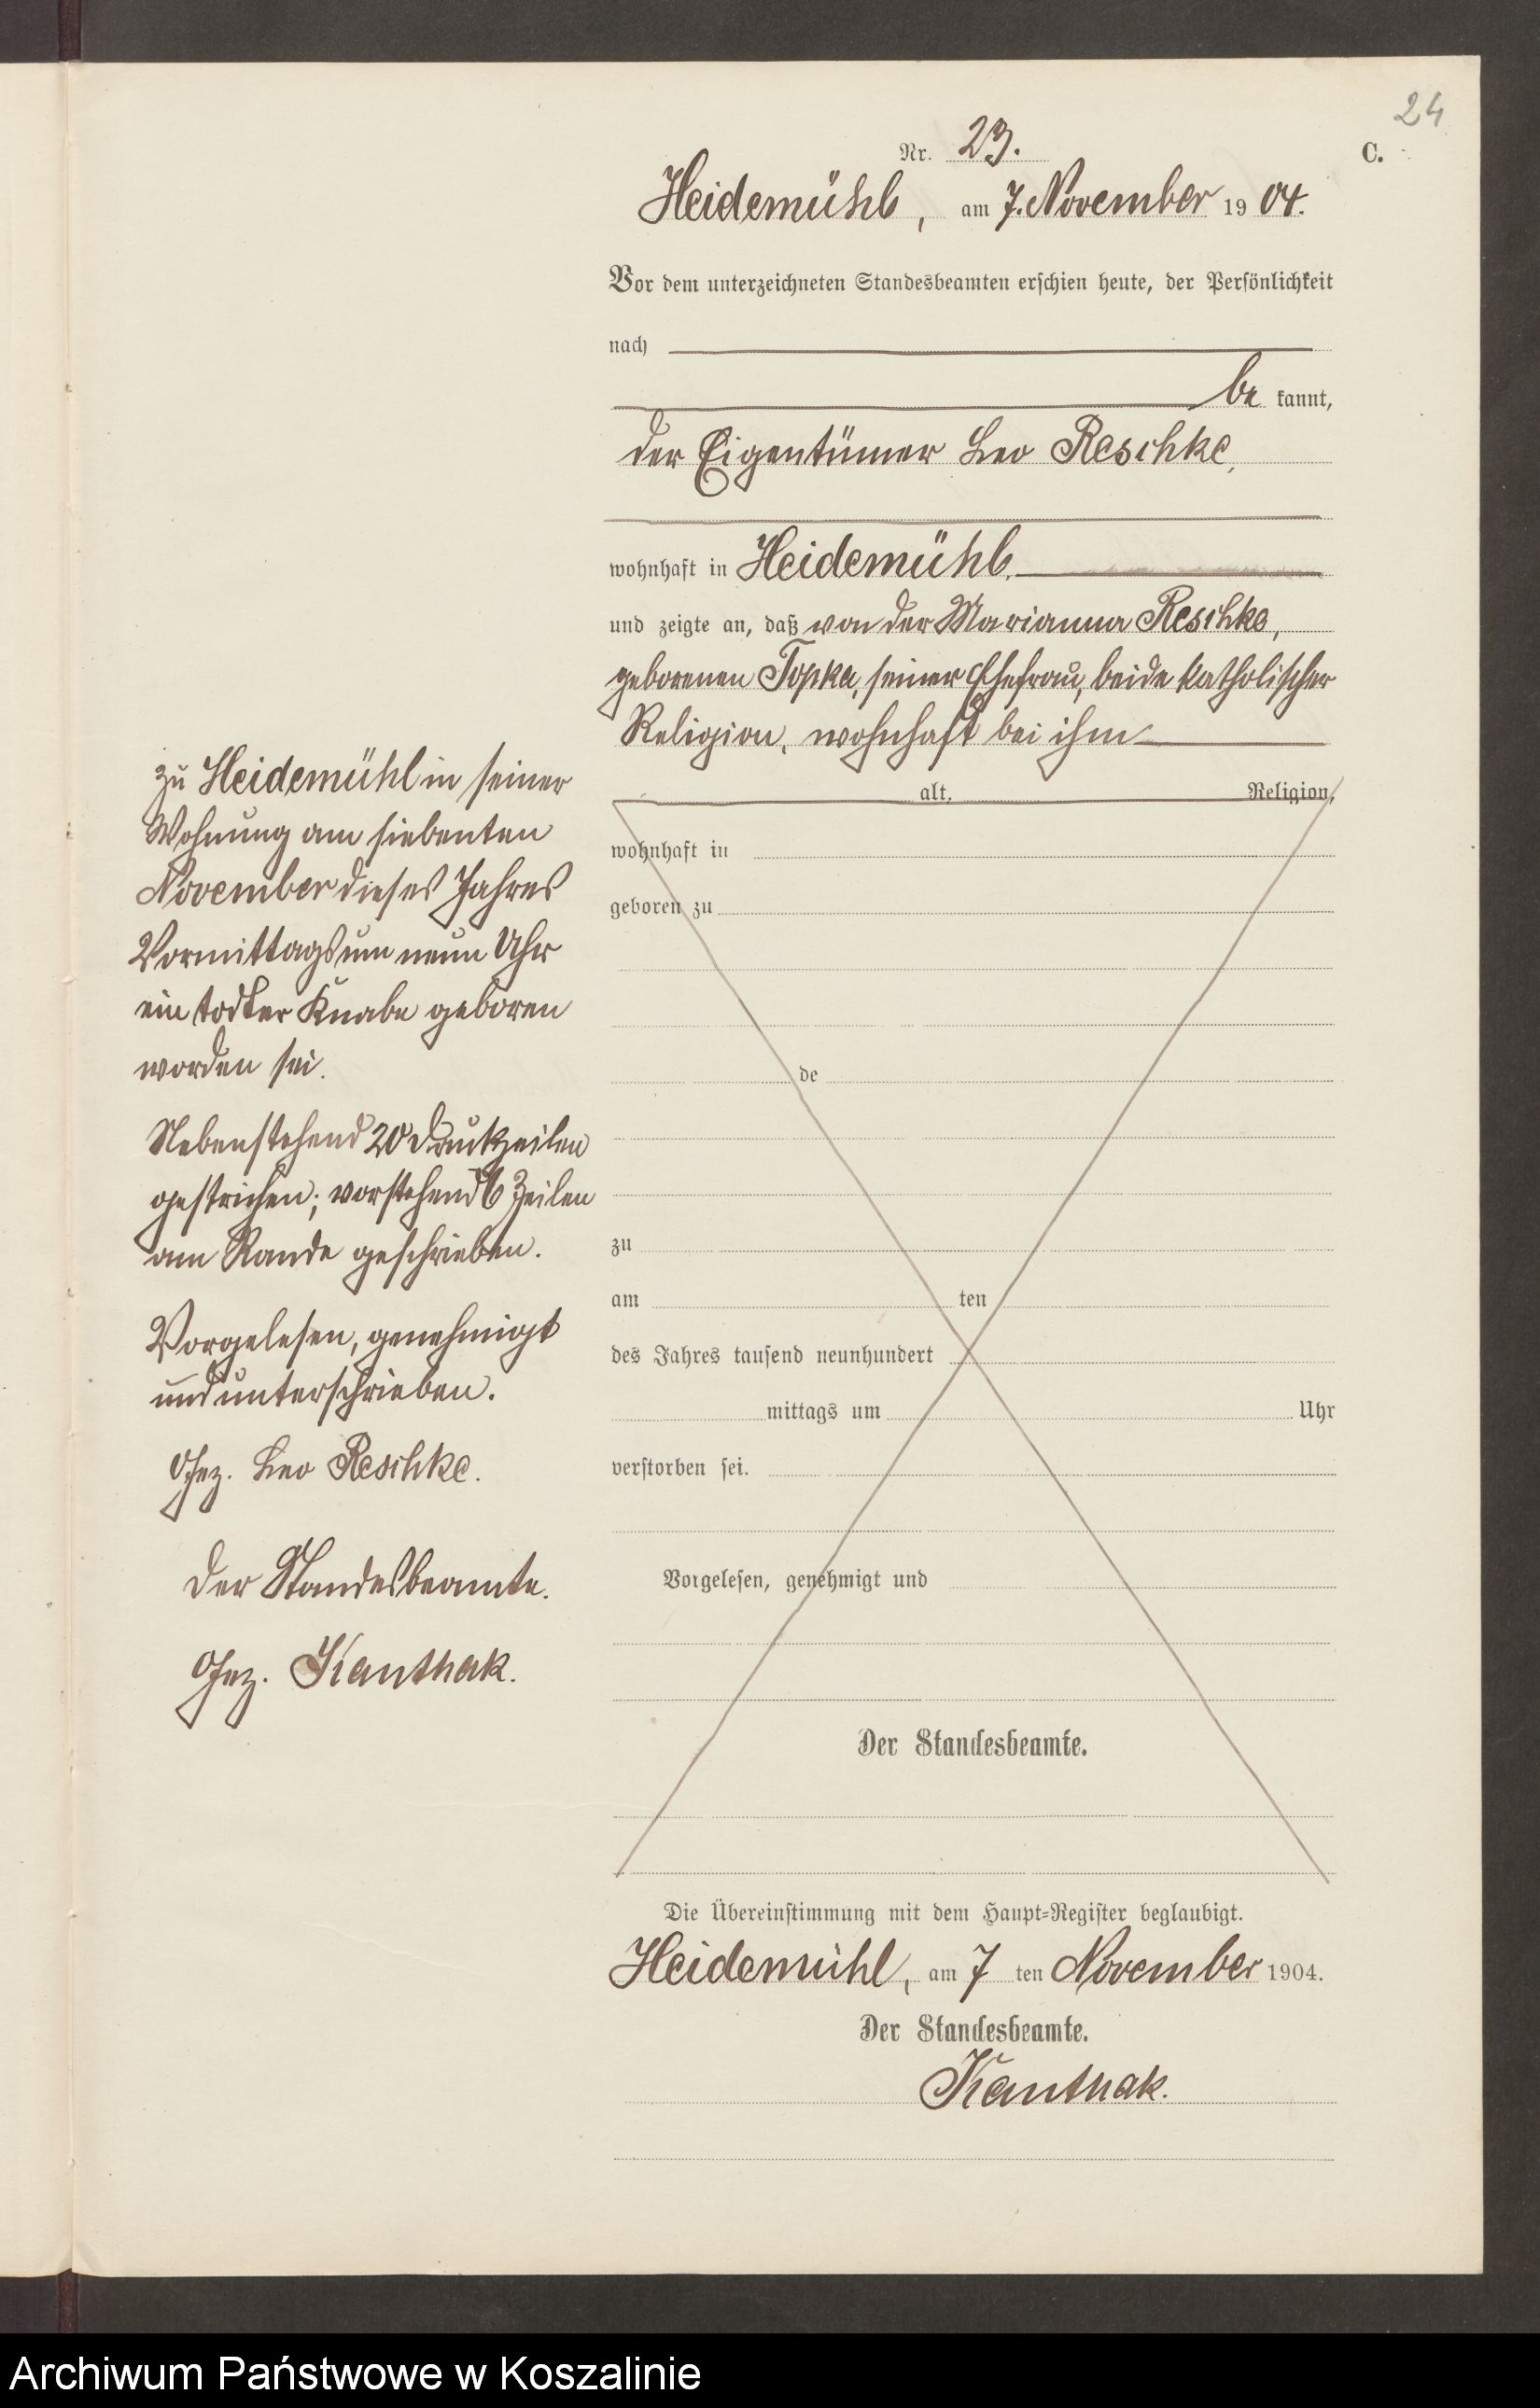 24
Nr. 23.
C.
Heidemühl, am 7. November 1904.
Vor dem unterzeichneten Standesbeamten erschien heute, der Persönlichkeit
nach
be kannt,
der Eigentümer Leo Reschke,
wohnhaft in Heidemühl.
und zeigte an, daß von der Marianna Reschke,
geborenen Topka, seiner Ehefrau, beide katholischer
Religion, wohnhaft bei ihm
zu Heidemühl in seiner
Wohnung am siebenten
November dieses Jahres
Vormittags um neun Uhr
ein todter Knabe geboren
worden sei.
Nebenstehend 20 Druckzeilen
gestrichen; vorstehend 6 Zeilen
am Rande geschrieben.
Vorgelesen, genehmigt
und unterschrieben.
Gez. Leo Reschke.
Der Standesbeamte.
Gez. Kanthak.
alt, Religion,
wohnhaft in
geboren zu
de
zu
am ten
des Jahres tausend neunhundert
mittags um Uhr
verstorben sei.
Vorgelesen, genehmigt und
Der Standesbeamte.
Die Übereinstimmung mit dem Haupt-Register beglaubigt.
Heidemühl, am 7 ten November 1904.
Der Standesbeamte.
Kanthak.
Archiwum Państwowe w Koszalinie